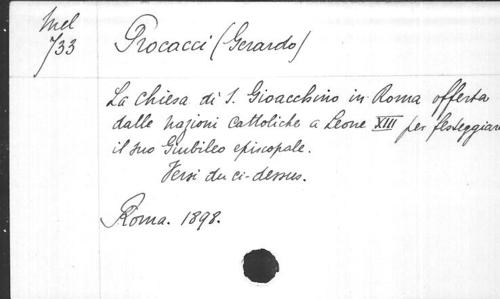 Mel
733
Procacci (Gerardo)
La chiesa di S. Gioacchino in Roma offerta
dalle nazioni cattoliche a Leone XIII per festeggiare
il suo Giubileo episcopale.
Versi du ci-dessus.
Roma. 1898.